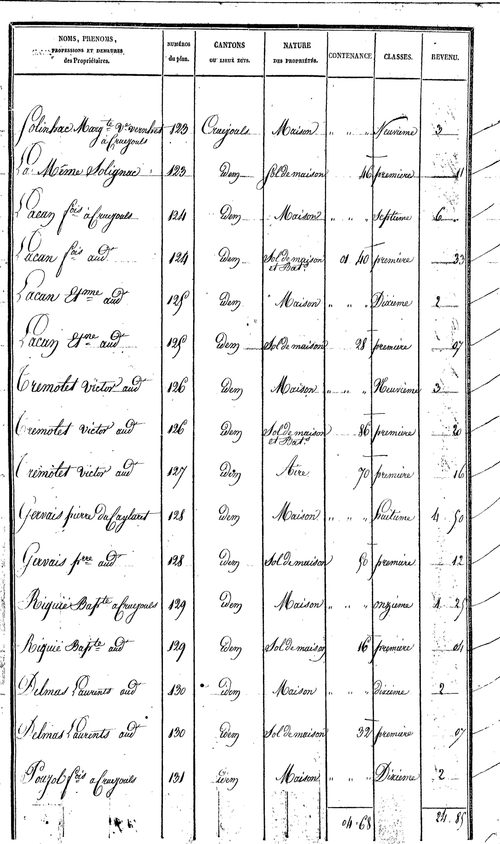 NOMS, PRENOMS, PROFESSIONS ET DEMEURES des Propriétaires. NUMÉROS du plan. CANTONS OU LIEUX DITS. NATURE DES PROPRIÉTÉS. CONTENANCE CLASSES. REVENU.
Solinhac Margte Ve vernhet à Cruejouls 123 Cruejouls Maison " " " Neuvième 3
La Même Solignac 123 idem Sol de maison 46 première 11
Lacan fois à Cruejouls 124 idem Maison " " " Septième 6 "
Lacan fois aud 124 idem Sol de maison et Batt 01 40 première 33
Lacan Etnne aud 125 idem Maison " " " Dixième 2
Lacan Etnne aud 125 idem Sol de maison 28 première 07
Tremolet Victor aud 126 idem Maison " " " Neuvième 3
Tremolet Victor aud 126 idem Sol de maison et Batt 86 première 20
Tremolet Victor aud 127 idem Aire 70 première 16
Gervais pierre du Caylaret 128 idem Maison " " " huitième 4 50
Gervais prre aud 128 idem Sol de maison 50 première 12
Riquié Bapte à Cruejouls 129 idem Maison " " " onzième 1 25
Riquié Bapte aud 129 idem Sol de maison 16 première 04
Delmas Laurents aud 130 idem Maison " " " dixième 2
Delmas Laurents aud 130 idem Sol de maison 32 première 07
Poujol fois à Cruejouls 131 idem Maison " " " Dixième 2
04.68 24.85